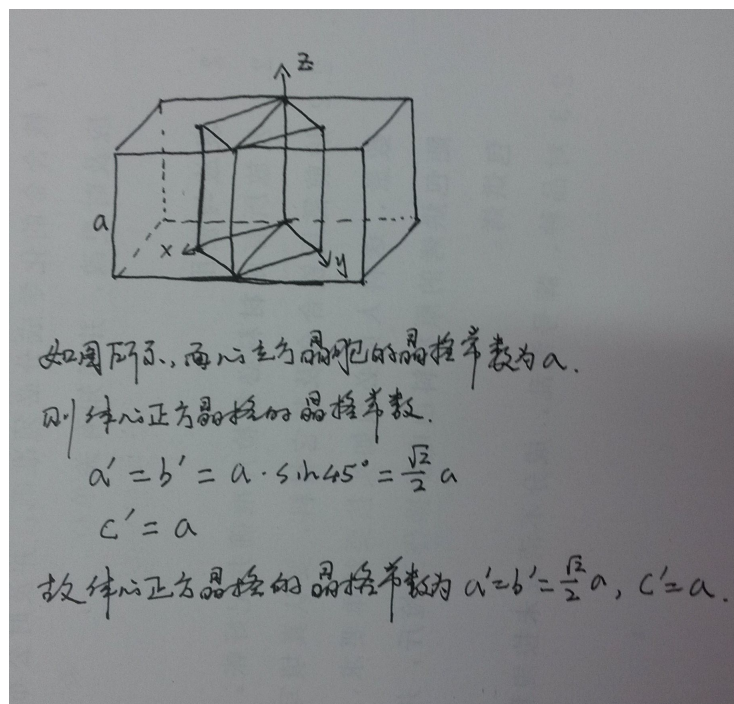 z
a
x
y
如图所示,面心立方晶胞的晶格常数为a.
则体心正方晶格的晶格常数.
a′ = b′ = a · sin45° = √2/2 a
c′ = a
故体心正方晶格的晶格常数为 a′=b′=√2/2 a, c′=a.